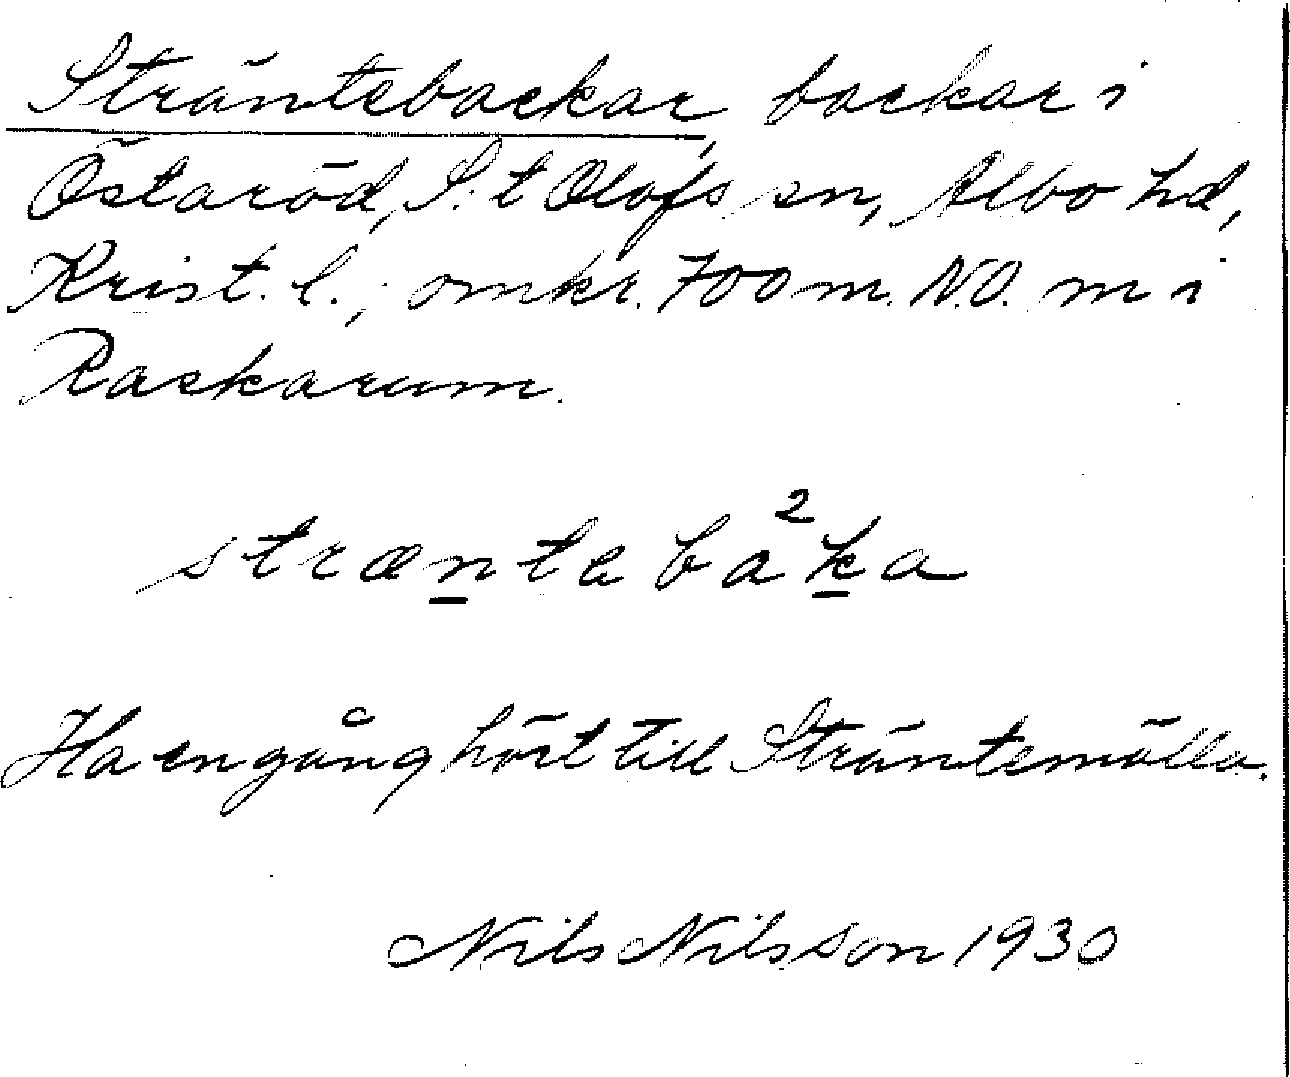 Sträntebackar, backar i
Östaröd, S:t Olofs sn, Albo hd,
Krist. l.; omkr. 700 m. N.O. m i
Raskarum.
strænteba²ka
Ha en gång hört till Sträntemölla.
Nils Nilsson 1930